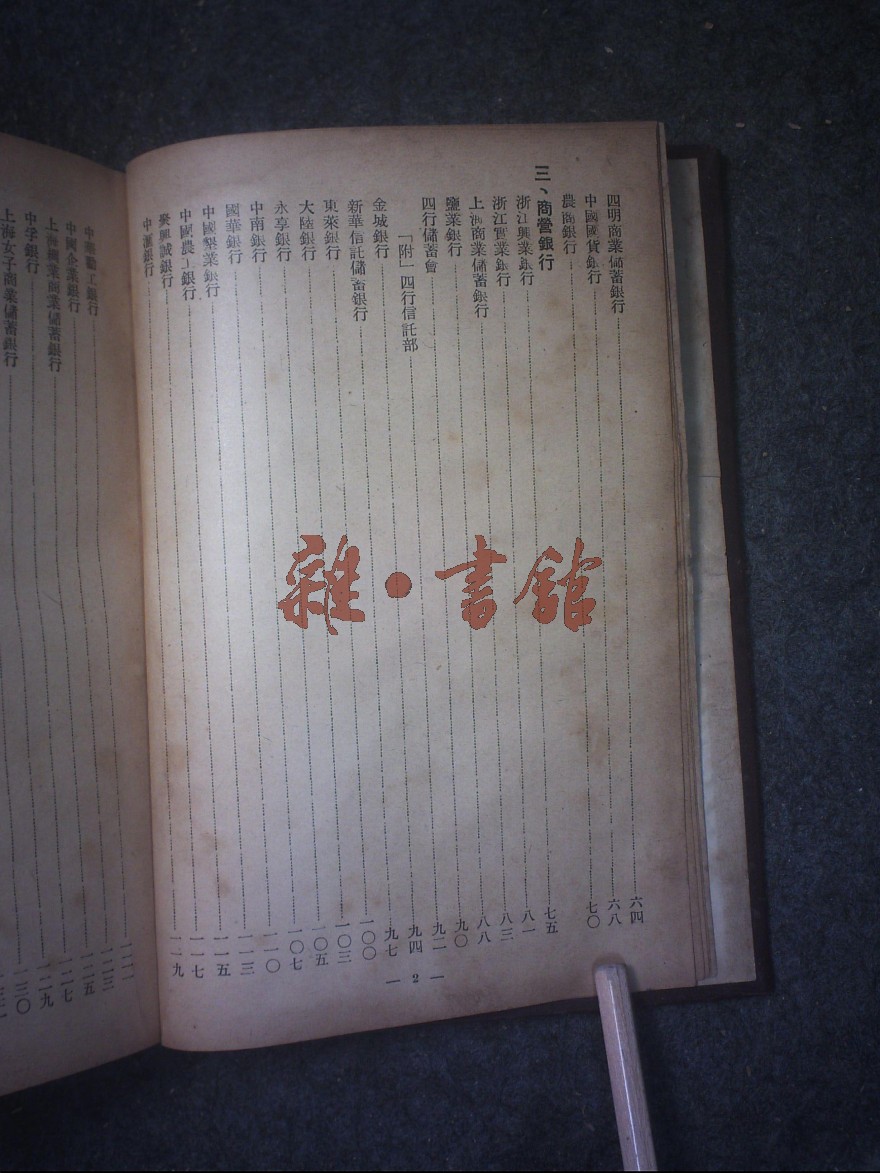 四明商業儲蓄銀行 六四
中國國貨銀行 六八
農商銀行 七〇
三、商營銀行
浙江興業銀行 七五
浙江實業銀行 八一
上海商業儲蓄銀行 八三
鹽業銀行 八八
四行儲蓄會 九〇
「附」四行信託部 九二
金城銀行 九四
新華信託儲蓄銀行 九七
東萊銀行 一〇〇
大陸銀行 一〇三
永亨銀行 一〇五
中南銀行 一〇七
國華銀行 一一〇
中國墾業銀行 一一三
中國農工銀行 一一五
聚興誠銀行 一一七
中滙銀行 一一九
— 2 —
中華勸工銀行 一二一
中國企業銀行 一二三
上海綢業商業儲蓄銀行 一二五
中孚銀行 一二七
上海女子商業儲蓄銀行 一二九
一三〇
雜·書館